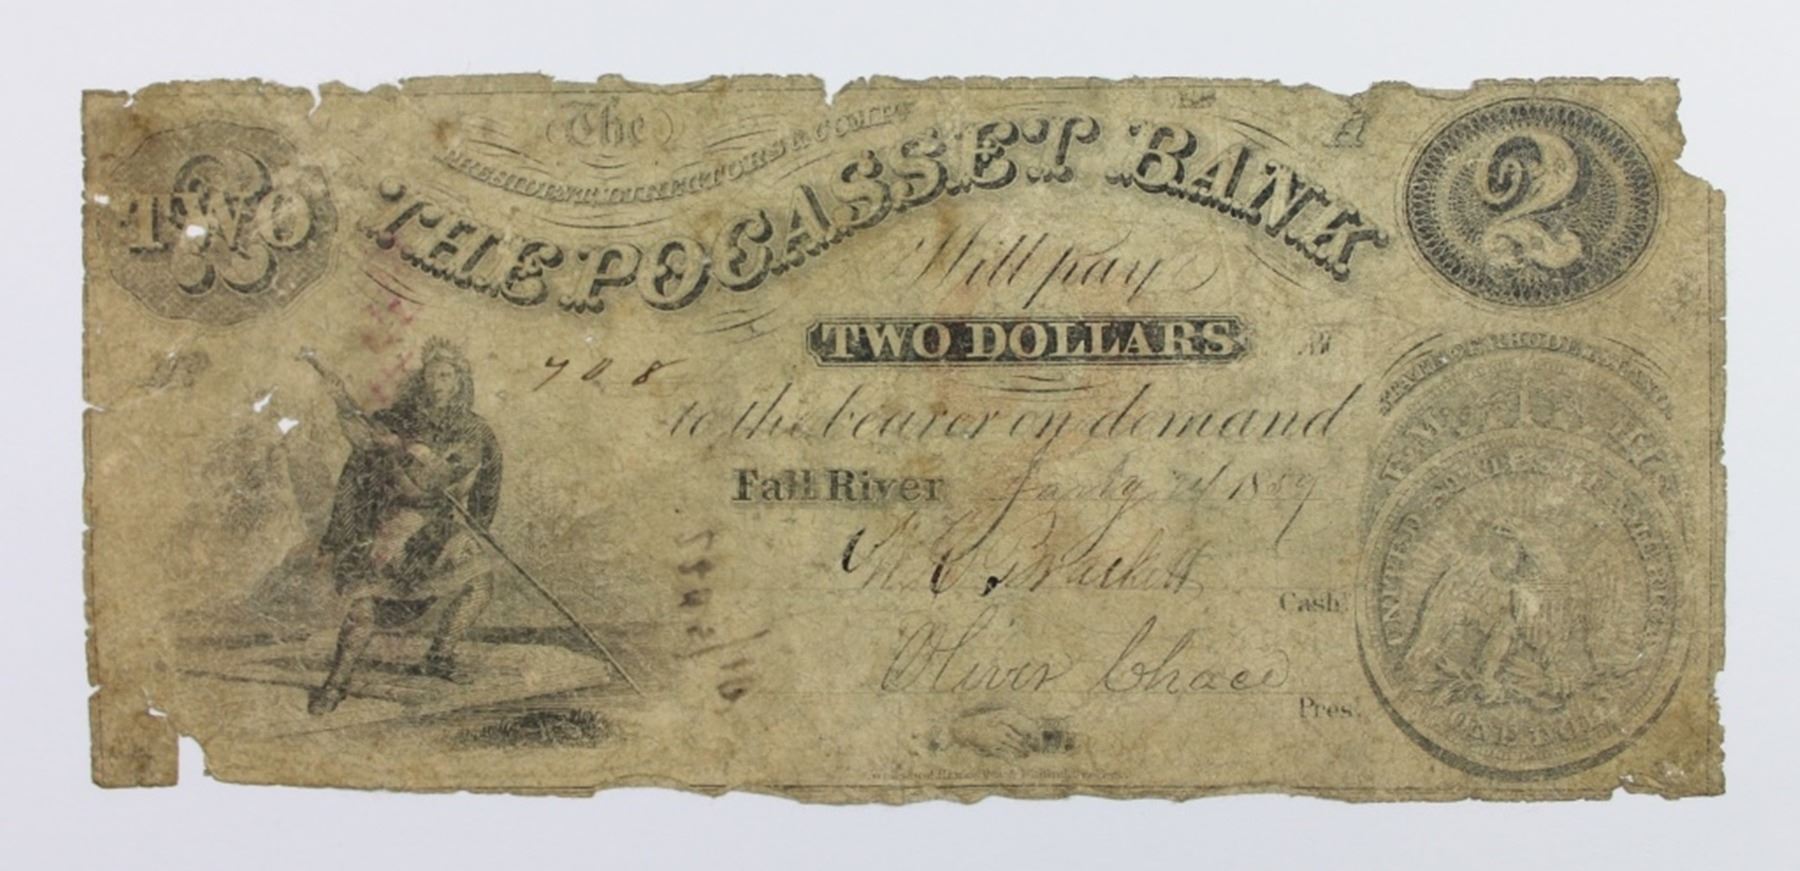 (The)
PRESIDENT DIRECTORS & COMPY
THE POCASSET BANK
2
TWO
2
Will pay
TWO DOLLARS
708
to the bearer on demand
STATE OF RHODE ISLAND
Fall River
UNITED STATES OF AMERICA
Cash.
Oliver Chace
Pres.